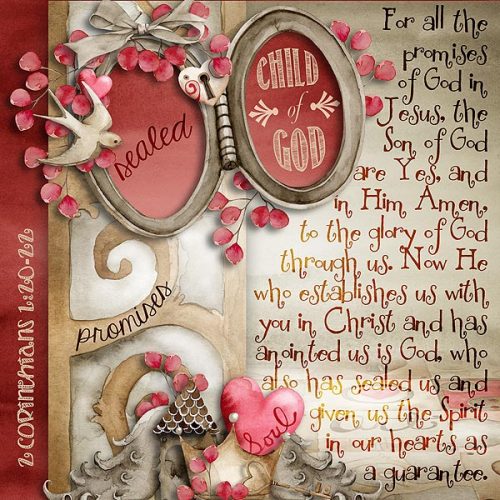 sealed
CHILD
of
GOD
promises
Soul
2 CORINTHIANS 1:20-22
For all the
promises
of God in
Jesus, the
Son of God
are Yes, and
in Him Amen,
to the glory of God
through us. Now He
who establishes us with
you in Christ and has
anointed us is God, who
also has sealed us and
given us the Spirit
in our hearts as
a guarantee.